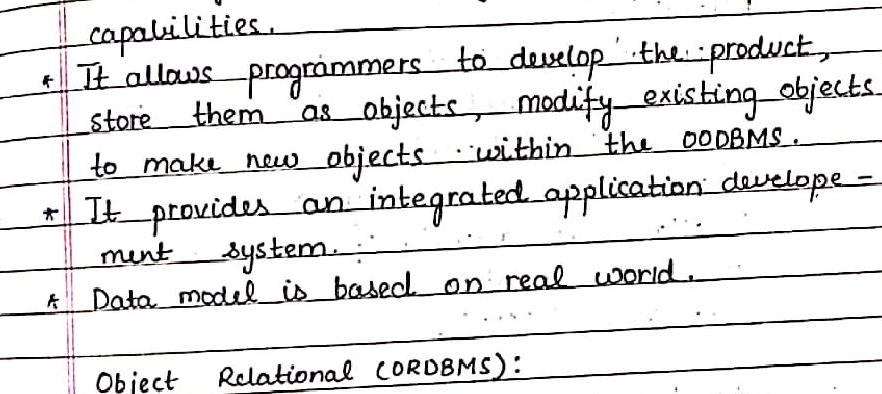 capabilities.
* It allows programmers to develop the product,
store them as objects, modify existing objects
to make new objects within the OODBMS.
* It provides an integrated application develope-
ment system.
* Data model is based on real world.
Object Relational (ORDBMS):